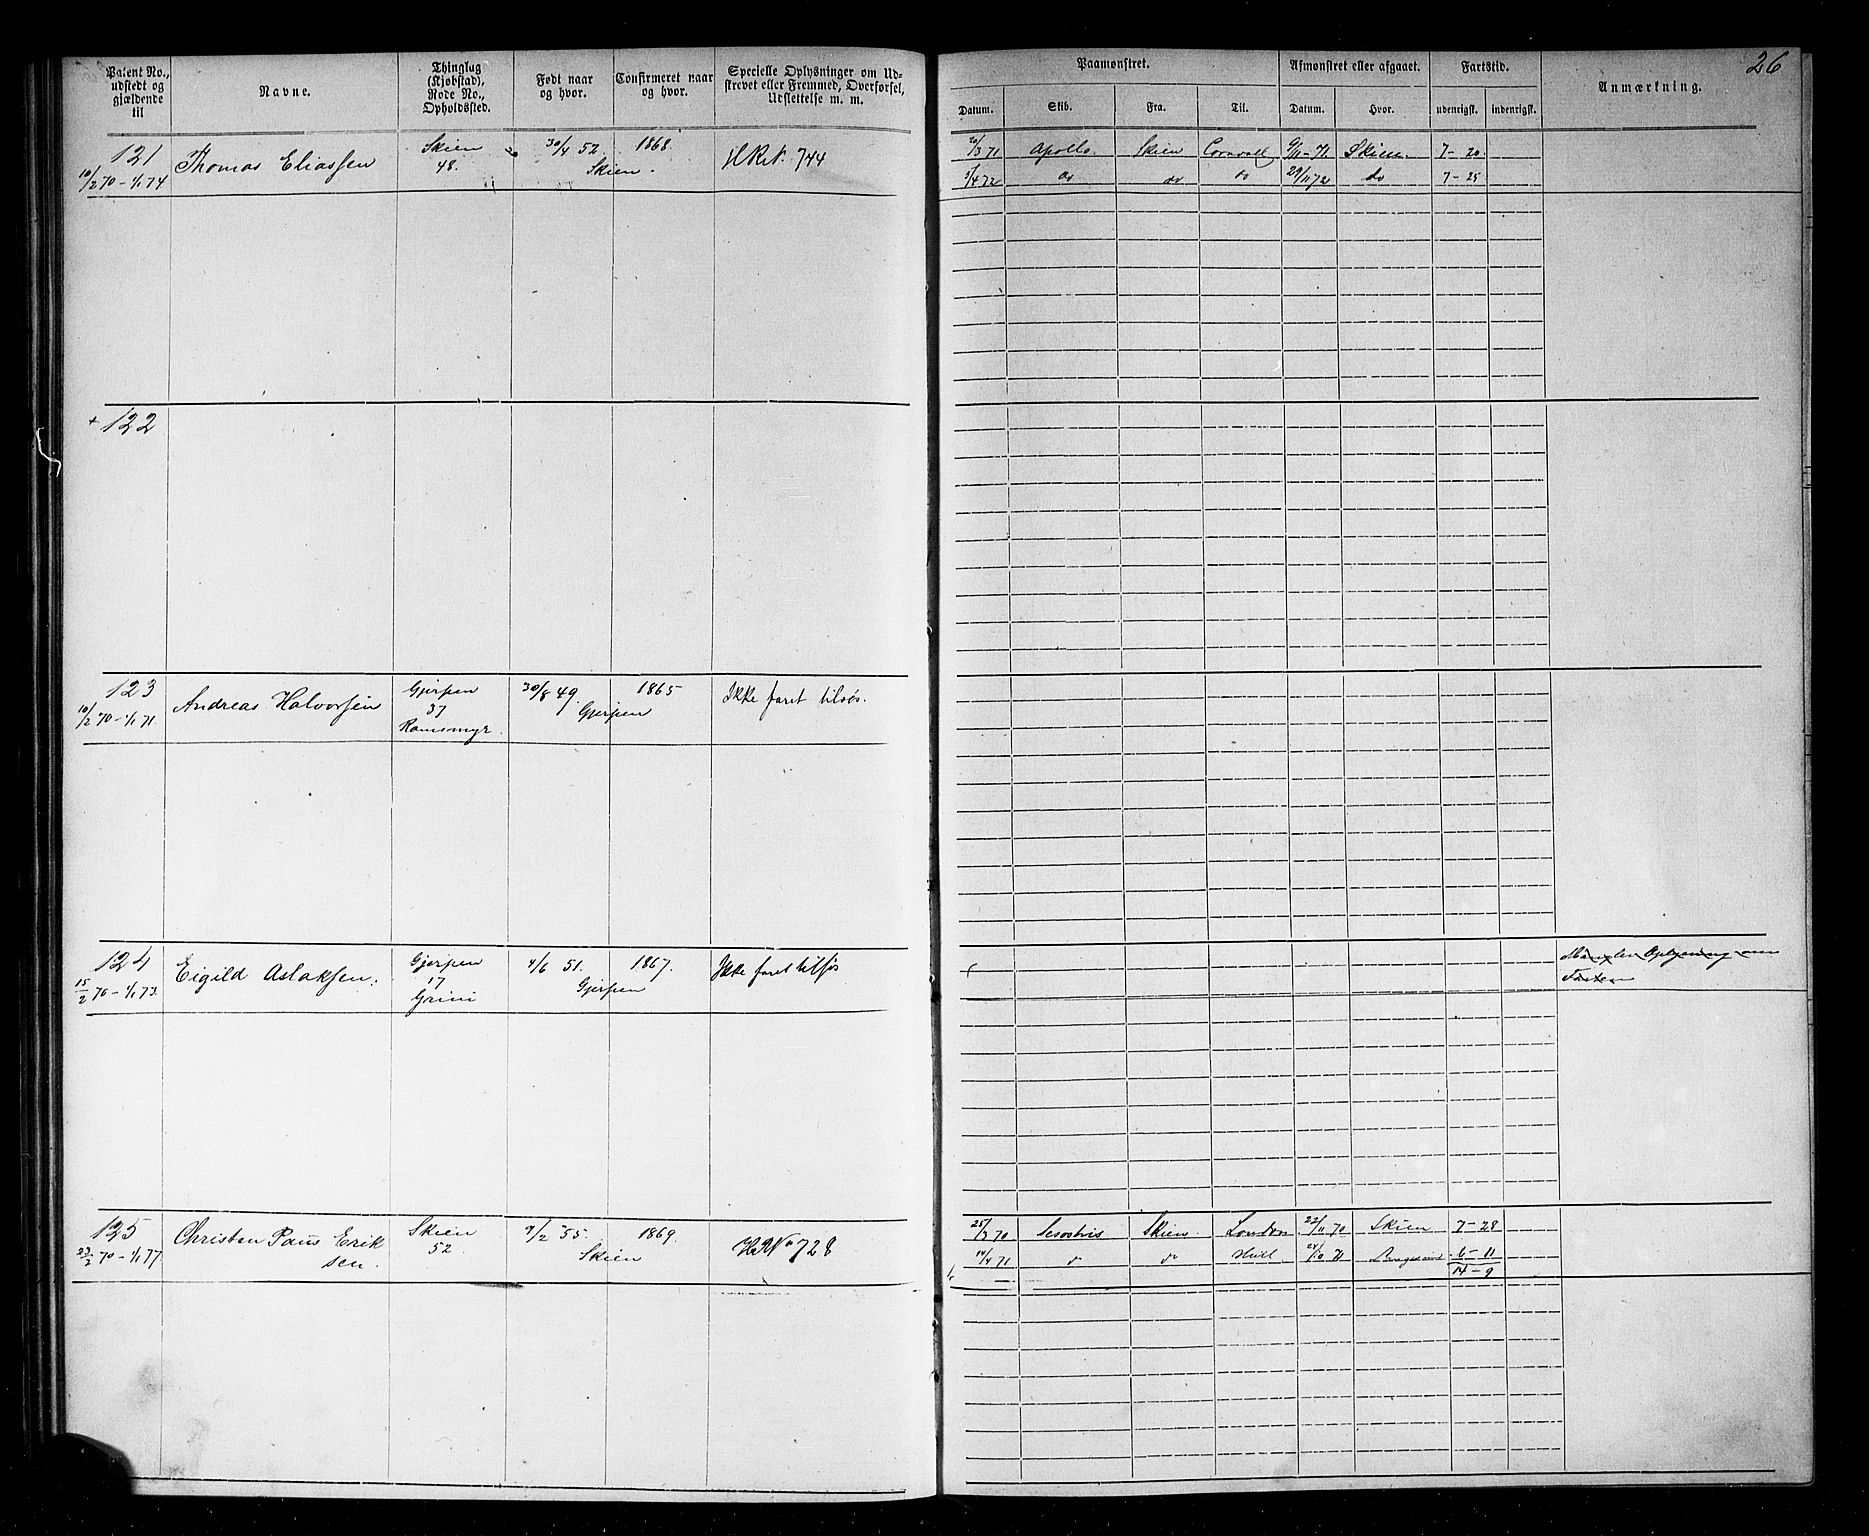 26
Patent No., udstedt og gjældende til
Navne.
Thinglag (Kjøbstad), Rode No., Opholdssted.
Født naar og hvor.
Confirmeret naar og hvor.
Specielle Oplysninger om Udskrevet eller Fremmed, Overførsel, Udslettelse m. m.
Paamønstret.
Afmønstret eller afgaaet.
Fartstid.
Anmærkning.
Datum. Skib. Fra. Til. Datum. Hvor. udenrigsk. indenrigsk.
121 Thomas Eliassen Skien 30/4 52. 1868. H.R.N. 744 20/3 71 Apollo. Skien Cornvall 9/11-71. Skien. 7-20.
10/2 70-1/1 74 48. Skien. 5/4 72 do do do 29/11 72 do 7-25
122
123 Andreas Halvorsen Gjerpen 30/8 49. 1865 Ikke faret tilsøs.
10/2 70-1/1 71. 37 Gjerpen
Ramsmyr.
124 Eigild Aslaksen. Gjerpen 4/6 51. 1867. Ikke faret tilsøs Mangler Oplysning om
15/2 70-1/1 73. 17 Gjerpen Farten
Grini
125 Christen Paus Erik Skien 9/2 55. 1869. No 728 25/3 70 Sesostris Skien. London 22/11 70 Skien 7-28
23/2 70-1/1 77. sen. 52. Skien 14/4 71 do do Hull 24/10 71 6-11
14-9